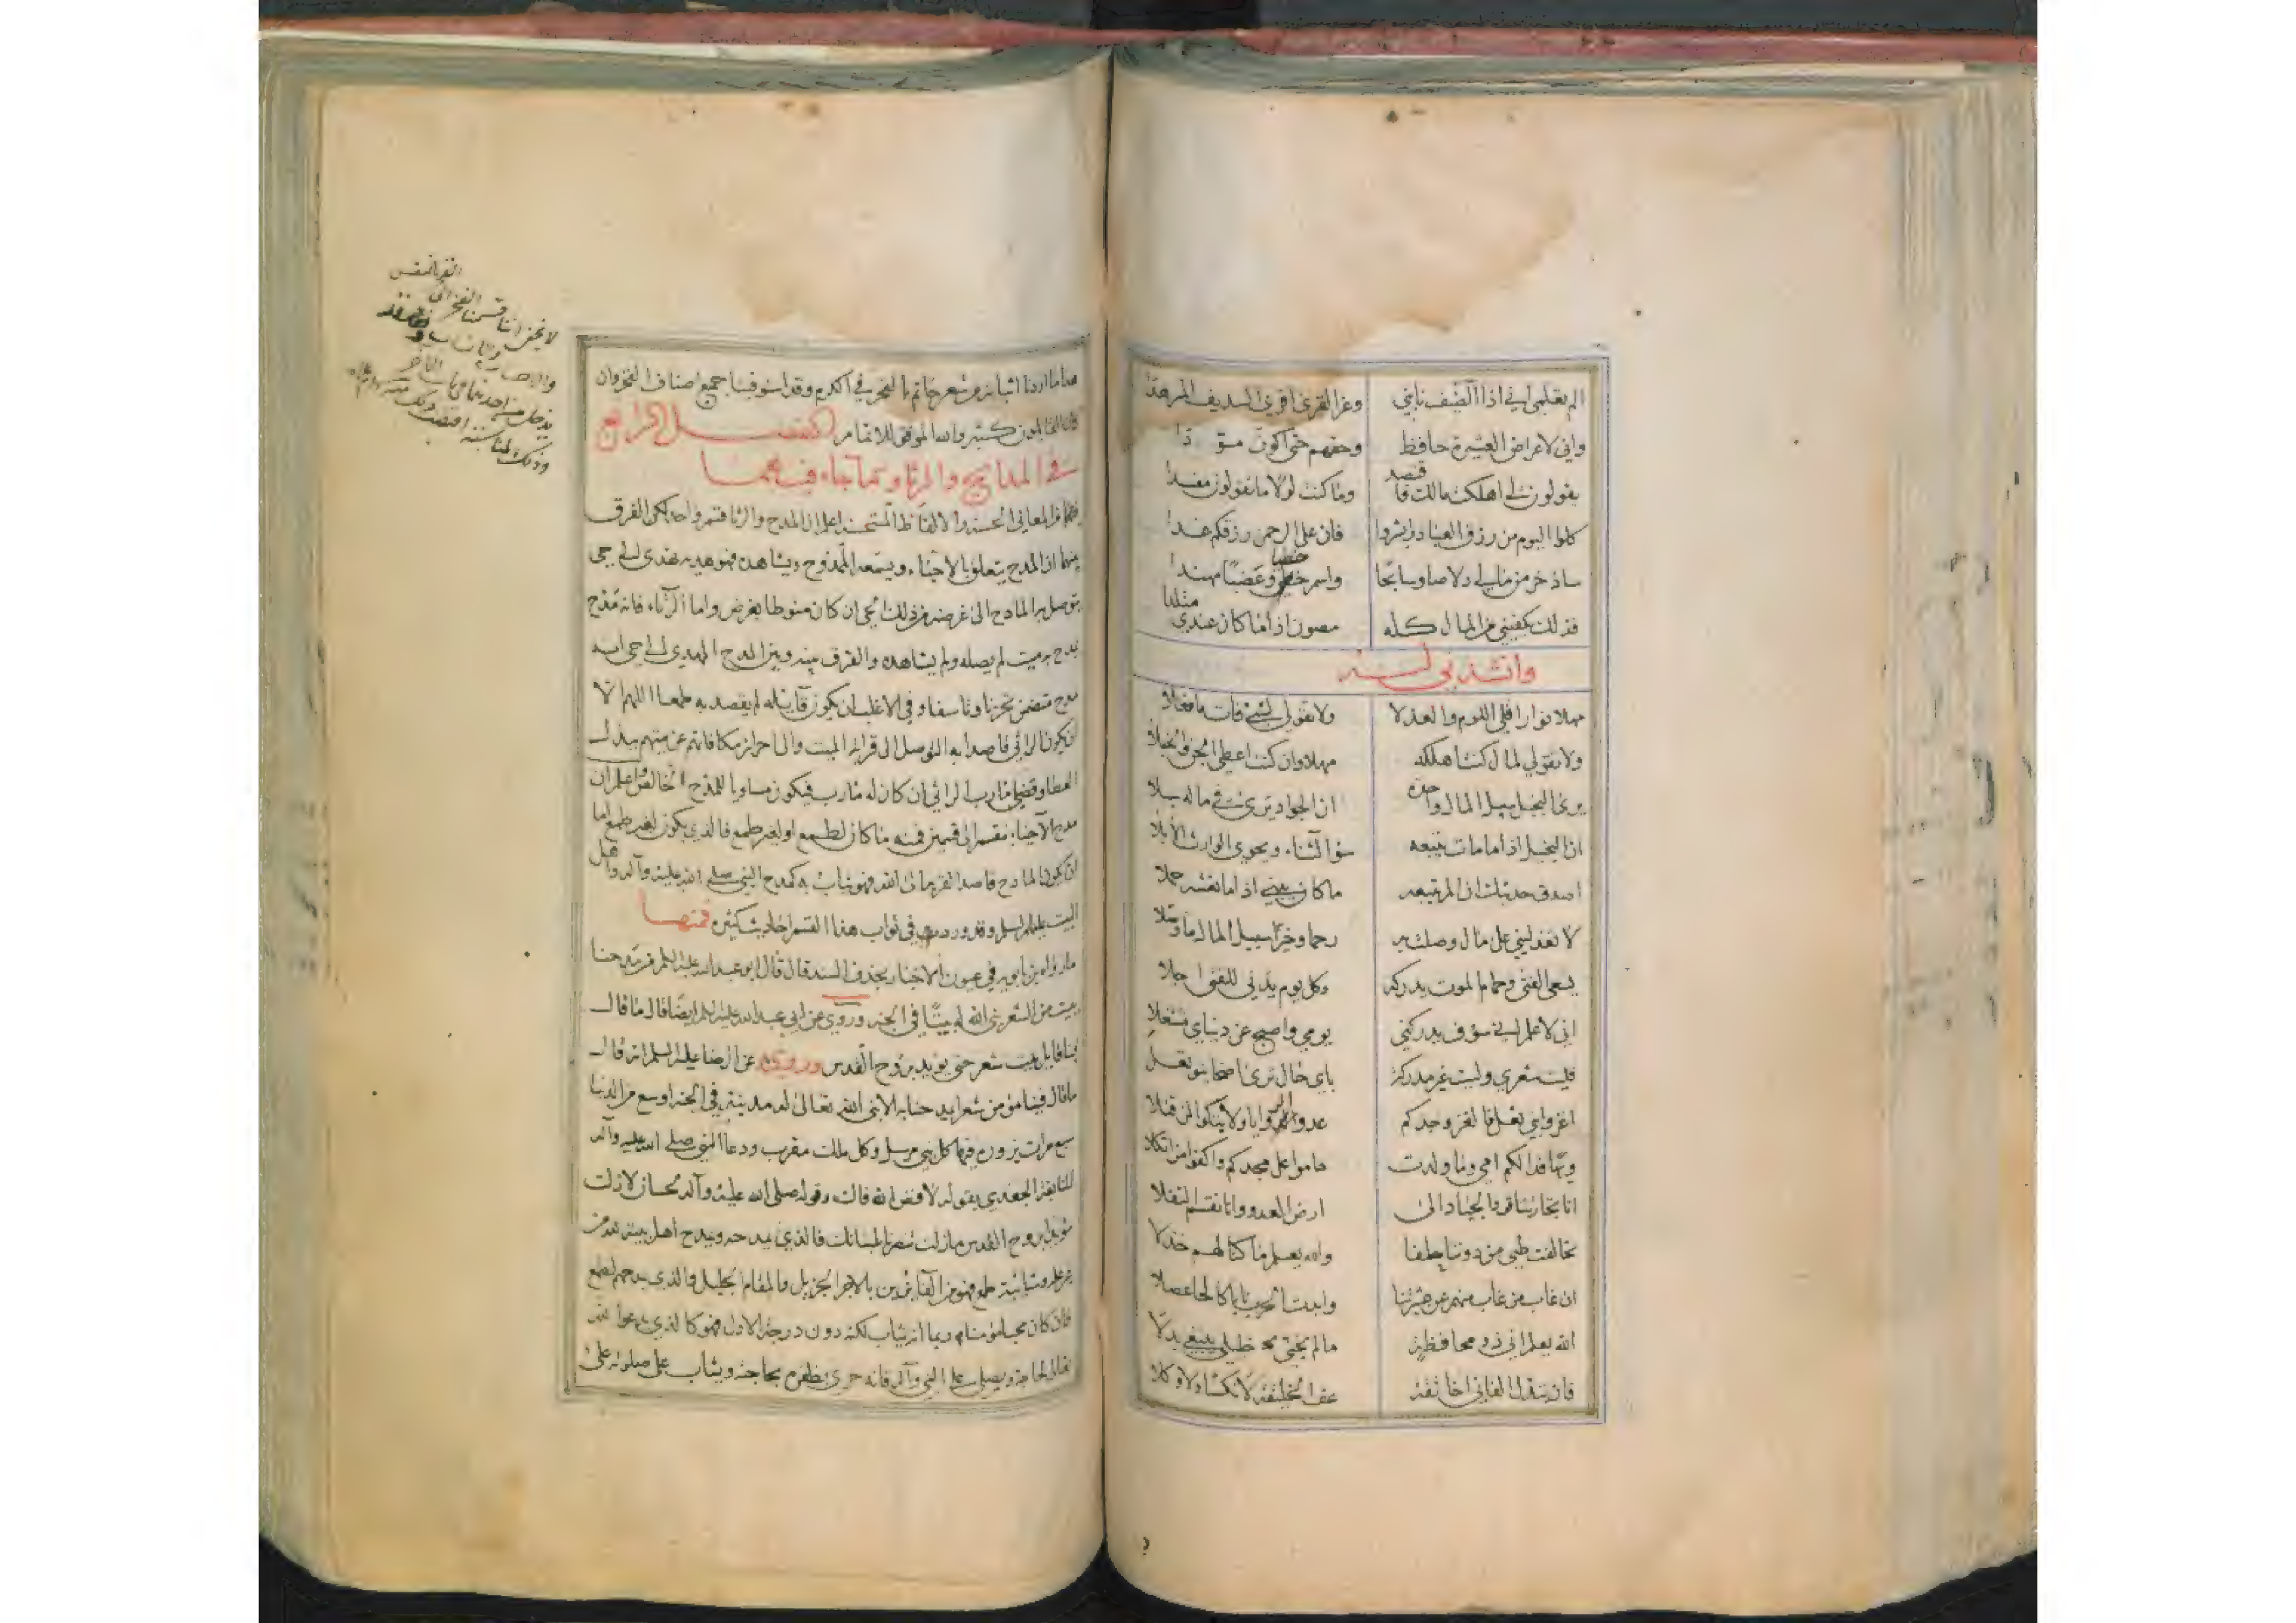 الم تعلمي اني اذا الضيف نابني وعز القرى اقري السديف المسرهدا
واني لاعراض العشيرة حافظ وحقهم حتى اكون مسودا
يقولون لي اهلكت مالك فاقتصد وما كنت لولا ما تقولون مفسدا
كلوا اليوم من رزق العباد وابشروا فان على الرحمن رزقكم غدا
ساذخر من مالي دلاصا وسابحا واسمر خطيا وعضبا مهندا
فذلك يكفيني من المال كله مصونا اذا ما كان عندي متلدا
وانشد بن له
مهلا نوار اقلي اللوم والعذلا ولا تقولي لشيء فات ما فعلا
ولا تقولي لمال كنت اهلكه مهلا وان كنت اعطي الجن والخبلا
يرى البخيل سبيل المال واحدة ان الجواد يرى في ماله سبلا
ان البخيل اذا ما مات يتبعه سوء الثناء ويحوي الوارث الابلا
اصدق حديثك ان المرء يتبعه ما كان يبني اذا ما نعشه حملا
لا تعذليني على مال وصلت به رحما وخير سبيل المال ما وصلا
يسعى الفتى وحمام الموت يدركه وكل يوم يدني للفتى اجلا
اني لاعلم اني سوف يدركني يومي واصبح عن دنياي مشتغلا
فليت شعري وليت غير مدركة باي حال ترى اضحى بنو ثعل
اغزوا بني ثعل فالغزو جدكم عدوا الروابي ولا تبكوا لمن قتلا
ويها فداكم امي وما ولدت حاموا على مجدكم واكفوا من اتكلا
ارض العدو وانا نقسم النفلا
تحالفت طي من دوننا حلفا والله يعلم ما كنا لهم خذلا
ان غاب من غاب منهم عن عشيرتنا وابدت الحرب نابا كالحا عصلا
الله يعلم اني ذو محافظة ما لم يخني خليلي يبتغي بدلا
فان تبدل الفاني اخا ثقة عف الخليقة لا نكسا ولا وكلا
هذا ما اردنا اثباته من شعر حاتم بالفخر في الكرم وقد استوفينا جميع اصناف الفخر وان
كان القائلون كثير والله الموفق للاتمام الفصل الرابع
في المدايح والرثاء وما جاء فيهما
فيهما من المعاني الحسنة والالفاظ المستحسنة اعلم ان المدح والرثا قسم واحد لكن الفرق
بينهما ان المدح يتعلق بالاحياء ويسمعه الممدوح ويشاهده فهو هدية تهدى الى حي
يتوصل به المادح الى غرضه من ذلك الحي ان كان منوطا بغرض واما الرثاء فانه مدح
يمدح به ميت لم يصله ولم يشاهده والفرق بينه وبين المدح المهدى الى حي انه
مدح متضمن تحزنا وتاسفا وفي الاغلب ان يكون قايله لم يقصد به طمعا اللهم الا
ان يكون الراثي قاصدا به التوصل الى قرابة الميت والى احراز مكافاتهم عن ميتهم ببذل
العطا وقضى مارب الراثي ان كان له مارب فيكون مساويا للمدح الخالص واعلم ان
مدح الاحياء ينقسم الى قسمين فمنه ما كان لطمع او لغير طمع فالذي يكون لغير طمع اما
ان يكون المادح قاصدا القربة الى الله فهو يثاب به كمدح النبي صلى الله عليه وآله واهل
البيت عليهم السلم وقد ورد في ثواب هذا القسم احاديث كثيرة فمنها
ما رواه بن بابويه في عيون الاخبار بحذف السند قال قال ابو عبد الله عليه السلم من مدحنا
ببيت من الشعر بنى الله له بيتا في الجنة وروي عن ابي عبد الله عليه السلم ايضا قال ما قال
فينا قايل بيت شعر حتى يويد بروح القدس وروي عن الرضا عليه السلم انه قال
ما قال فينا مؤمن شعرا يمدحنا به الا بنى الله تعالى له مدينة في الجنة اوسع من الدنيا
سبع مرات يزوره فيها كل نبي مرسل وكل ملك مقرب ودعا النبي صلى الله عليه وآله
للنابغة الجعدي بقوله لا فض الله فاك وقوله صلى الله عليه وآله لحسان لازلت
مؤيدا بروح القدس ما زلت تنصرنا بلسانك فالذي يمدحه ويمدح اهل بيته لله من
غير علة وشائبة طمع فهو من الفائزين بالاجر الجزيل والمقام الجليل والذي يمدحهم لطمع
فان كان محبا مؤمنا به ربما انه يثاب لكنه دون درجة الاول فهو كالذي يدعوا الله
تعالى لحاجة ويصلي على النبي وآله فانه حري بظفره بحاجته ويثاب على صلوته على